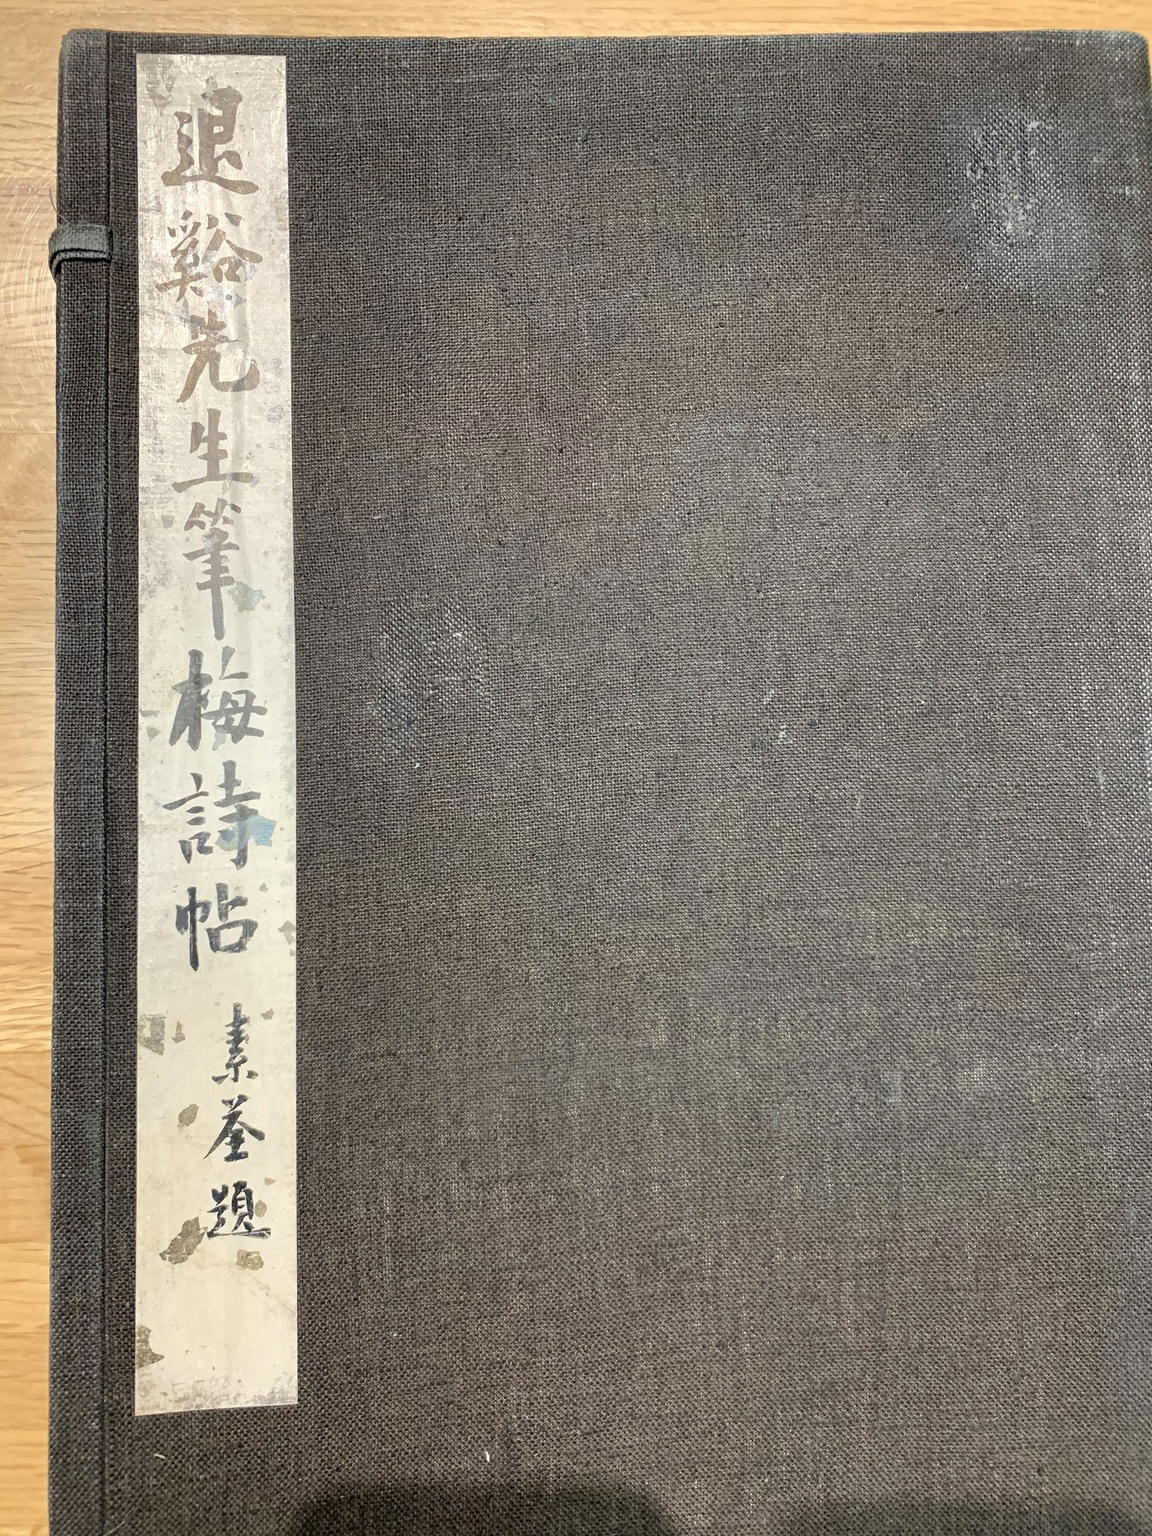 退谿先生筆梅詩帖
素荃題